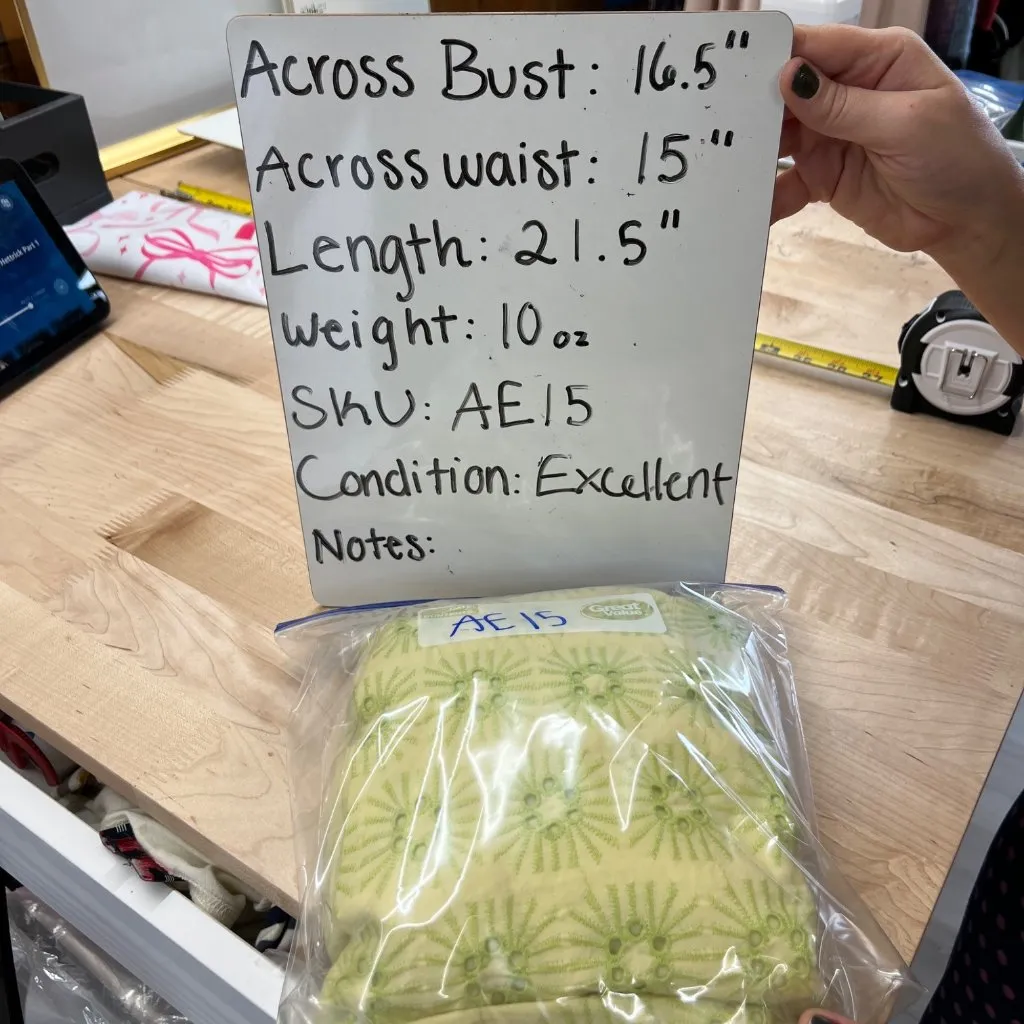 Across Bust: 16.5"
Across waist: 15"
Length: 21.5"
Weight: 10 oz
SKU: AE15
Condition: Excellent
Notes:
AE15
Great Value
Hettrick Part 1